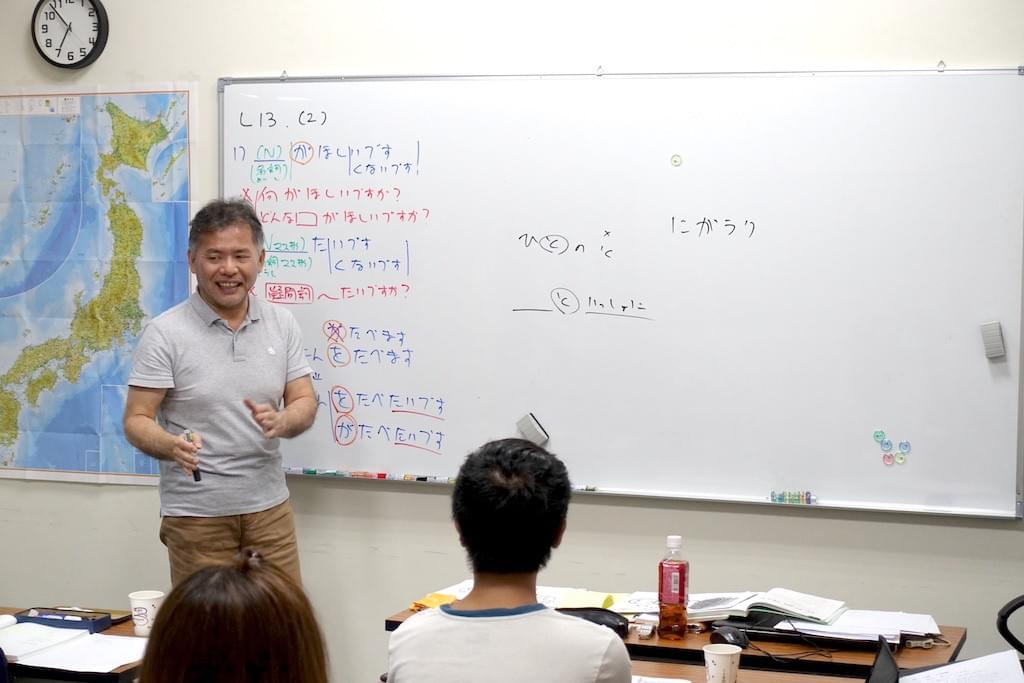 L13. (2)
1) (N) が ほしいです
(名詞) くないです
何がほしいですか?
どんな□がほしいですか?
マス形) たいです
マス形) くないです
疑問詞 ～たいですか?
が たべます
を たべます
を たべたいです
が たべたいです
ひとの
と いっしょに
にがうり